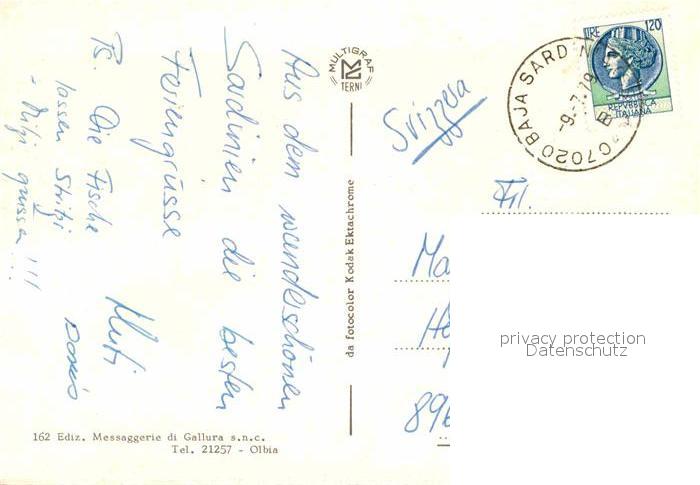 Aus dem wunderschönen
Sardinien die besten
Feriengrüsse
Muti
Doris
Ps. Die Fische
lassen Stritzi
grüssen !!!
MULTIGRAF
TERNI
da fotocolor Kodak Ektachrome
162 Ediz. Messaggerie di Gallura s.n.c.
Tel. 21257 - Olbia
LIRE 120
REPVBBLICA
ITALIANA
07020 BAJA SARD
-9.-7.
Svizzera
Frl.
Ma
He
896
privacy protection
Datenschutz